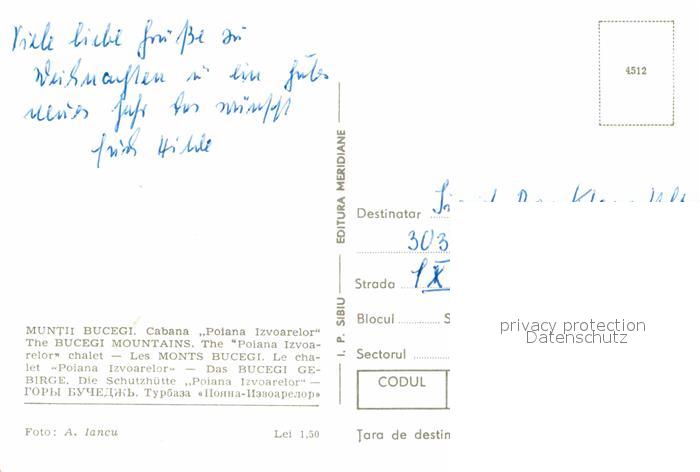 Viele liebe Grüße zu
Weihnachten u ein gutes
neues Jahr das wünscht
Hilde
4512
Destinatar
303
Strada IX
Blocul S
Sectorul
CODUL
Țara de destin
I. P. SIBIU — EDITURA MERIDIANE
privacy protection
Datenschutz
MUNȚII BUCEGI. Cabana „Poiana Izvoarelor"
The BUCEGI MOUNTAINS. The "Poiana Izvoa-
relor" chalet — Les MONTS BUCEGI. Le cha-
let «Poiana Izvoarelor» — Das BUCEGI GE-
BIRGE. Die Schutzhütte „Poiana Izvoarelor" —
ГОРЫ БУЧЕДЖЬ. Турбаза «Пояна-Извоарелор»
Foto: A. Iancu Lei 1,50